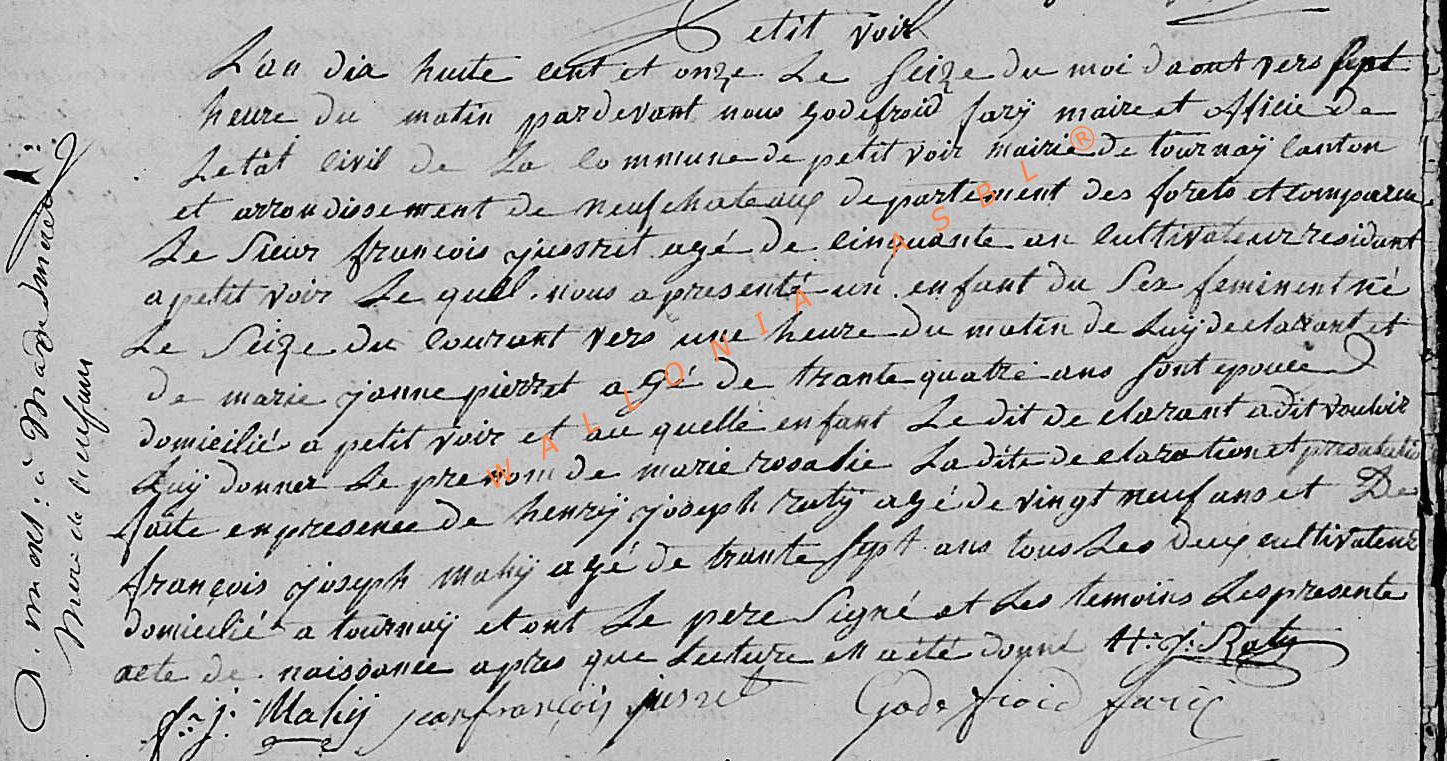 Petit voir
L'an dia huite cent et onze Le Seize du moi daout vers sept
heure du matin pardevant nous godefroid fary maire et officie de
Letat Civil de La Commune de petit voir mairie de tournaÿ Canton
et arrondissement de neufchateaux departement des forets et comparue
Le Sieur françois jusrit agé de cinquante an Cultivateur residant
a petit voir Le quel nous a presenté un enfant du Sex feminent né
Le Seize du Courant vers une heure du matin de Luÿ declarant et
de marie janne pierret agé de trante quatre ans sont epouée
domicilié a petit voir et au quelle enfant Le dit declarant a dit vouloir
Luÿ donner Le prenom de marie rosalie La dite declaration et presentatio
faite en presence de henrÿ joseph raty agé de vingt neuf ans et De
françois joseph Mahÿ agé de trante sept ans tous Les deux cultivateur
domicilié a tournaÿ et ont Le pere Signé et Les temoins Les presente
acte de naissance apres que Lecture en a été donné H: J: Raty
f: j: Mahÿ jeanfrançois jusret Godefroid farii
mere de l'enfans
WALLONIA ASBL ®